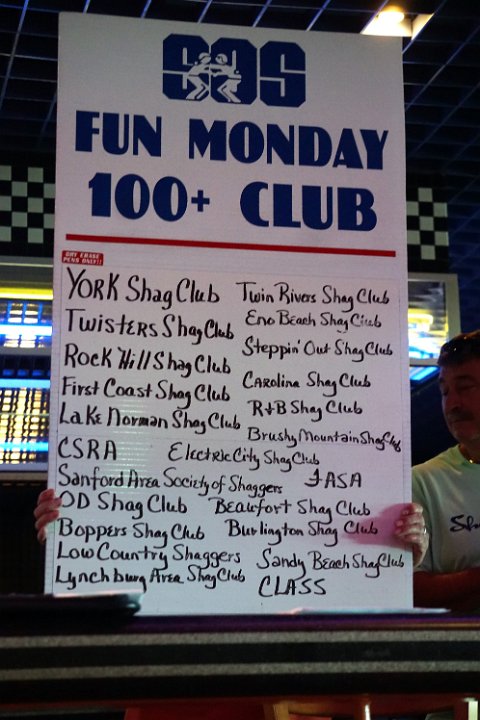 SOS
FUN MONDAY
100+ CLUB
DRY ERASE
PENS ONLY!!
YORK Shag Club
Twin Rivers Shag Club
Twisters Shag Club
Eno Beach Shag Club
Steppin' Out Shag Club
Rock Hill Shag Club
Carolina Shag Club
First Coast Shag Club
R+B Shag Club
Lake Norman Shag Club
Brushy Mountain Shag Club
CSRA
Electric City Shag Club
Sanford Area Society of Shaggers
FASA
OD Shag Club
Beaufort Shag Club
Boppers Shag Club
Burlington Shag Club
Low Country Shaggers
Sandy Beach Shag Club
Lynchburg Area Shag Club
CLASS